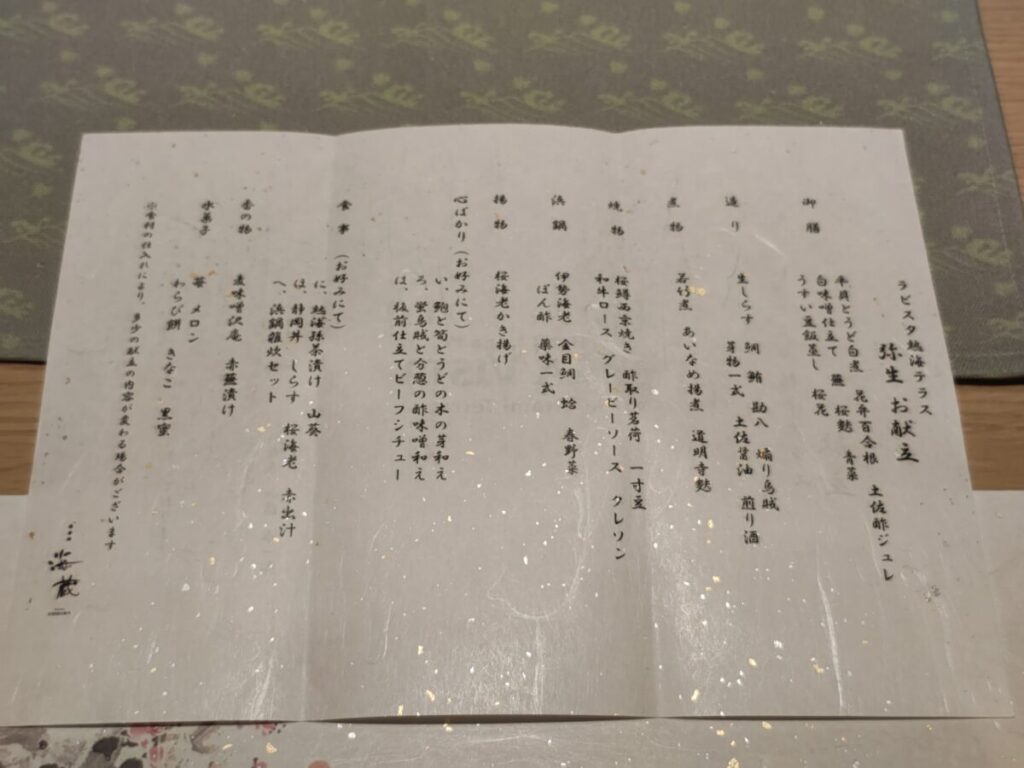 ラビスタ熱海テラス
弥生 お献立
御膳
平貝とうど白煮 花弁百合根 土佐酢ジュレ
白味噌仕立て 蕪 桜麩 青菜
うすい豆飯蒸し 桜花
造り
生しらす 鯛 鮪 勘八 煽り烏賊
芽物一式 土佐醤油 煎り酒
煮物
若竹煮 あいなめ揚煮 道明寺麩
焼物
桜鱒西京焼き 酢取り茗荷 一寸豆
和牛ロース グレービーソース クレソン
浜鍋
伊勢海老 金目鯛 蛤 春野菜
ぽん酢 薬味一式
揚物
桜海老かき揚げ
心ばかり(お好みにて)
い、鮑と筍とうどの木の芽和え
ろ、蛍烏賊と分葱の酢味噌和え
は、板前仕立てビーフシチュー
食事(お好みにて)
に、熱海孫茶漬け 山葵
ほ、静岡丼 しらす 桜海老 赤出汁
へ、浜鍋雑炊セット
香の物
麦味噌沢庵 赤蕪漬け
水菓子
苺 メロン
わらび餅 きなこ 黒蜜
※食材の仕入れにより、多少の献立の内容が変わる場合がございます
海蔵